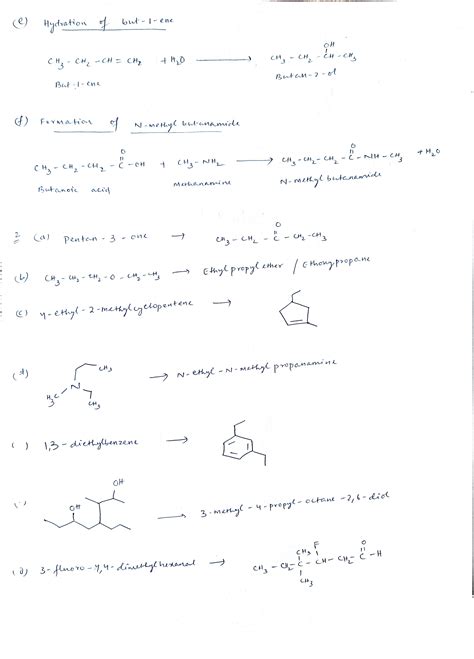 (e) Hydration of but-1-ene
OH
CH3 - CH2 - CH = CH2 + H2O → CH3 - CH2 - CH - CH3
But-1-ene Butan-2-ol
(f) Formation of N-methyl butanamide
O O
CH3 - CH2 - CH2 - C - OH + CH3 - NH2 → CH3 - CH2 - CH2 - C - NH - CH3 + H2O
Butanoic acid Methanamine N-methyl butanamide
2 (a) pentan-3-one → CH3 - CH2 - C - CH2 - CH3
O
(b) CH3 - CH2 - CH2 - O - CH2 - CH3 → Ethyl propyl ether / Ethoxypropane
(c) 4-ethyl-2-methylcyclopentene →
(d) CH3 N H3C CH3 → N-ethyl-N-methyl propanamine
( ) 1,3-diethylbenzene →
OH OH → 3-methyl-4-propyl-octane-2,6-diol
3-fluoro-4,4-dimethylhexanal → CH3 - CH2 - C - CH - CH2 - C - H
CH3 F O
CH3